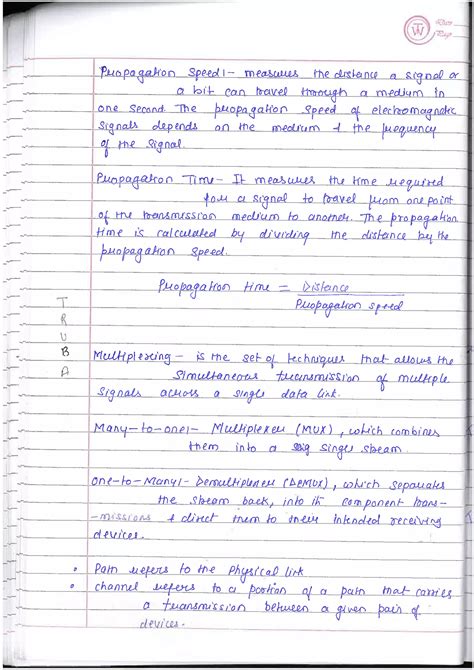 Date
Page
Propagation Speed:- measures the distance a signal or
a bit can travel through a medium in
one second. The propagation speed of electromagnetic
signals depends on the medium & the frequency
of the signal.
Propagation Time- It measures the time required
for a signal to travel from one point
of the transmission medium to another. The propagation
time is calculated by dividing the distance by the
propagation speed.
Propagation time = Distance
Propagation speed
T
R
U
B
A
Multiplexing - is the set of techniques that allows the
simultaneous transmission of multiple
signals across a single data link.
Many-to-one:- Multiplexer (MUX), which combines
them into a single stream.
One-to-Many:- Demultiplexer (DEMUX), which separates
the stream back, into its component trans-
-missions & direct them to their intended receiving
devices.
• Path refers to the physical link
• channel refers to a portion of a path that carries
a transmission between a given pair of
devices.